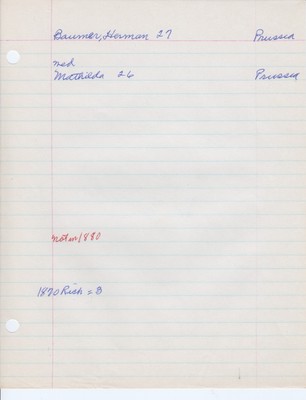 Baumer, Herman 27 Prussia
md
Matthilda 26 Prussia
not in 1880
1870 Rich = B